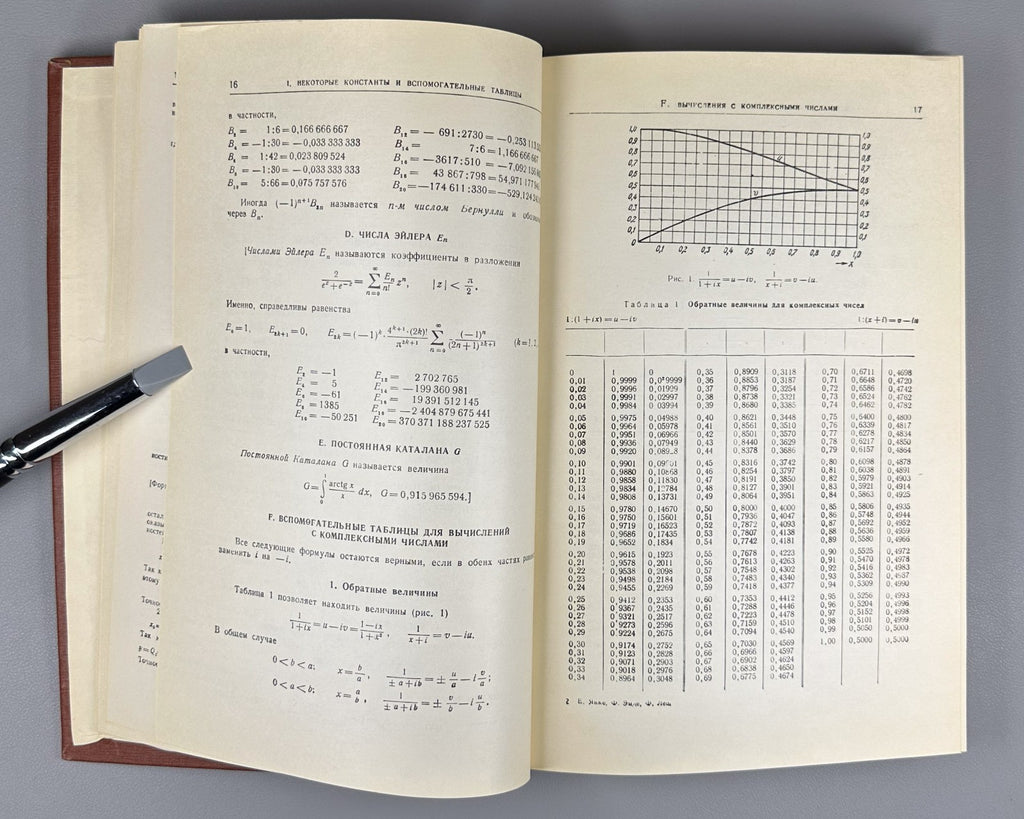 16
I. НЕКОТОРЫЕ КОНСТАНТЫ И ВСПОМОГАТЕЛЬНЫЕ ТАБЛИЦЫ
в частности,
1:6=0,166 666 667
—1:30= —0,033 333 333
1:42=0,023 809 524
—1:30= —0,033 333 333
5:66=0,075 757 576
B₁₂= — 691:2730= —0,253 113
7:6=1,166 666 667
—3617:510 = —7,092 156
43 867:798=54,971 177
B₂₀=—174 611:330=—529,124
Иногда (—1)ⁿ⁺¹B₂ₙ называется n-м числом Бернулли и
через Bₙ.
D. ЧИСЛА ЭЙЛЕРА Eₙ
[Числами Эйлера Eₙ называются коэффициенты в разложении
2/(eᶻ+e⁻ᶻ)=∑ₙ₌₀^∞ Eₙ/n! zⁿ, |z| < π/2.
Именно, справедливы равенства
E₀=1, E₂ₖ₊₁=0, E₂ₖ=(—1)ᵏ · 4ᵏ⁺¹·(2k)!/π²ᵏ⁺¹ ∑ₙ₌₀^∞ (—1)ⁿ/(2n+1)²ᵏ⁺¹ (k=1,
в частности,
E₂ = —1
E₄ = 5
E₆ = —61
E₈ = 1385
E₁₀ = —50 251
E₁₂ = 2 702 765
E₁₄ = —199 360 981
E₁₆ = 19 391 512 145
E₁₈ = —2 404 879 675 441
E₂₀ = 370 371 188 237 525
E. ПОСТОЯННАЯ КАТАЛАНА G
Постоянной Каталана G называется величина
G=∫₀¹ arctg x/x dx, G=0,915 965 594.]
F. ВСПОМОГАТЕЛЬНЫЕ ТАБЛИЦЫ ДЛЯ ВЫЧИСЛЕНИЙ
С КОМПЛЕКСНЫМИ ЧИСЛАМИ
Все следующие формулы остаются верными, если в обеих частях
заменить i на —i.
1. Обратные величины
Таблица 1 позволяет находить величины (рис. 1)
1/(1+ix)=u—iv=(1—ix)/(1+x²), 1/(x+i)=v—iu.
В общем случае
0<b<a; x=b/a, 1/(±a+ib)=±u/a—i v/a;
0<a<b; x=a/b, 1/(±a+ib)=±v/b—i u/b.
F. ВЫЧИСЛЕНИЯ С КОМПЛЕКСНЫМИ ЧИСЛАМИ
17
1,0 1,0
0,9 0,9
0,8 0,8
0,7 0,7
0,6 0,6
0,5 0,5
0,4 0,4
0,3 0,3
0,2 0,2
0,1 0,1
u
v
0 0,1 0,2 0,3 0,4 0,5 0,6 0,7 0,8 0,9 1,0
Рис. 1. 1/(1+ix)=u—iv, 1/(x+i)=v—iu.
Таблица 1 Обратные величины для комплексных чисел
1:(1+ix)=u—iv 1:(x+i)=v—iu
0 1 0 0,35 0,8909 0,3118 0,70 0,6711 0,4698
0,01 0,9999 0,0²9999 0,36 0,8853 0,3187 0,71 0,6648 0,4720
0,02 0,9996 0,01929 0,37 0,8796 0,3254 0,72 0,6586 0,4742
0,03 0,9991 0,02997 0,38 0,8738 0,3321 0,73 0,6524 0,4762
0,04 0,9984 0 03994 0,39 0,8680 0,3385 0,74 0,6462 0,4782
0,05 0,9975 0,04988 0,40 0,8621 0,3448 0,75 0,6400 0,4800
0,06 0,9964 0,05978 0,41 0,8561 0,3510 0,76 0,6339 0,4817
0,07 0,9951 0,06966 0,42 0,8501 0,3570 0,77 0,6278 0,4834
0,08 0,9936 0,07949 0,43 0,8440 0,3629 0,78 0,6217 0,4850
0,09 0,9920 0,44 0,8378 0,3686 0,79 0,6157 0,4864
0,10 0,9901 0,45 0,8316 0,3742 0,80 0,6098 0,4878
0,11 0,9880 0,10868 0,46 0,8254 0,3797 0,81 0,6038 0,4891
0,12 0,9858 0,11830 0,47 0,8191 0,3850 0,82 0,5979 0,4903
0,13 0,9834 0,12784 0,48 0,8127 0,3901 0,83 0,5921 0,4914
0,14 0,9808 0,13731 0,49 0,8064 0,3951 0,84 0,5863 0,4925
0,15 0,9780 0,14670 0,50 0,8000 0,4000 0,85 0,5806 0,4935
0,16 0,9750 0,15601 0,51 0,7936 0,4047 0,86 0,5748 0,4944
0,17 0,9719 0,16523 0,52 0,7872 0,4093 0,87 0,5692 0,4952
0,18 0,9686 0,17435 0,53 0,7807 0,4138 0,88 0,5636 0,4959
0,19 0,9652 0,1834 0,54 0,7742 0,4181 0,89 0,5580 0,4966
0,20 0,9615 0,1923 0,55 0,7678 0,4223 0,90 0,5525 0,4972
0,21 0,9578 0,2011 0,56 0,7613 0,4263 0,91 0,5470 0,4978
0,22 0,9538 0,2098 0,57 0,7548 0,4302 0,92 0,5416 0,4983
0,23 0,9498 0,2184 0,58 0,7483 0,4340 0,93 0,5362 0,4987
0,24 0,9455 0,2269 0,59 0,7418 0,4377 0,94 0,5309 0,4990
0,25 0,9412 0,2353 0,60 0,7353 0,4412 0,95 0,5256 0,4993
0,26 0,9367 0,2435 0,61 0,7288 0,4446 0,96 0,5204 0,4996
0,27 0,9321 0,2517 0,62 0,7223 0,4478 0,97 0,5152 0,4998
0,28 0,9273 0,2596 0,63 0,7159 0,4510 0,98 0,5101 0,4999
0,29 0,9224 0,2675 0,64 0,7094 0,4540 0,99 0,5050 0,5000
0,30 0,9174 0,2752 0,65 0,7030 0,4569 1,00 0,5000 0,5000
0,31 0,9123 0,2828 0,66 0,6966 0,4597
0,32 0,9071 0,2903 0,67 0,6902 0,4624
0,33 0,9018 0,2976 0,68 0,6838 0,4650
0,34 0,8964 0,3048 0,69 0,6775 0,4674
2 Е. Янке, Ф. Эмде, Ф. Лёш